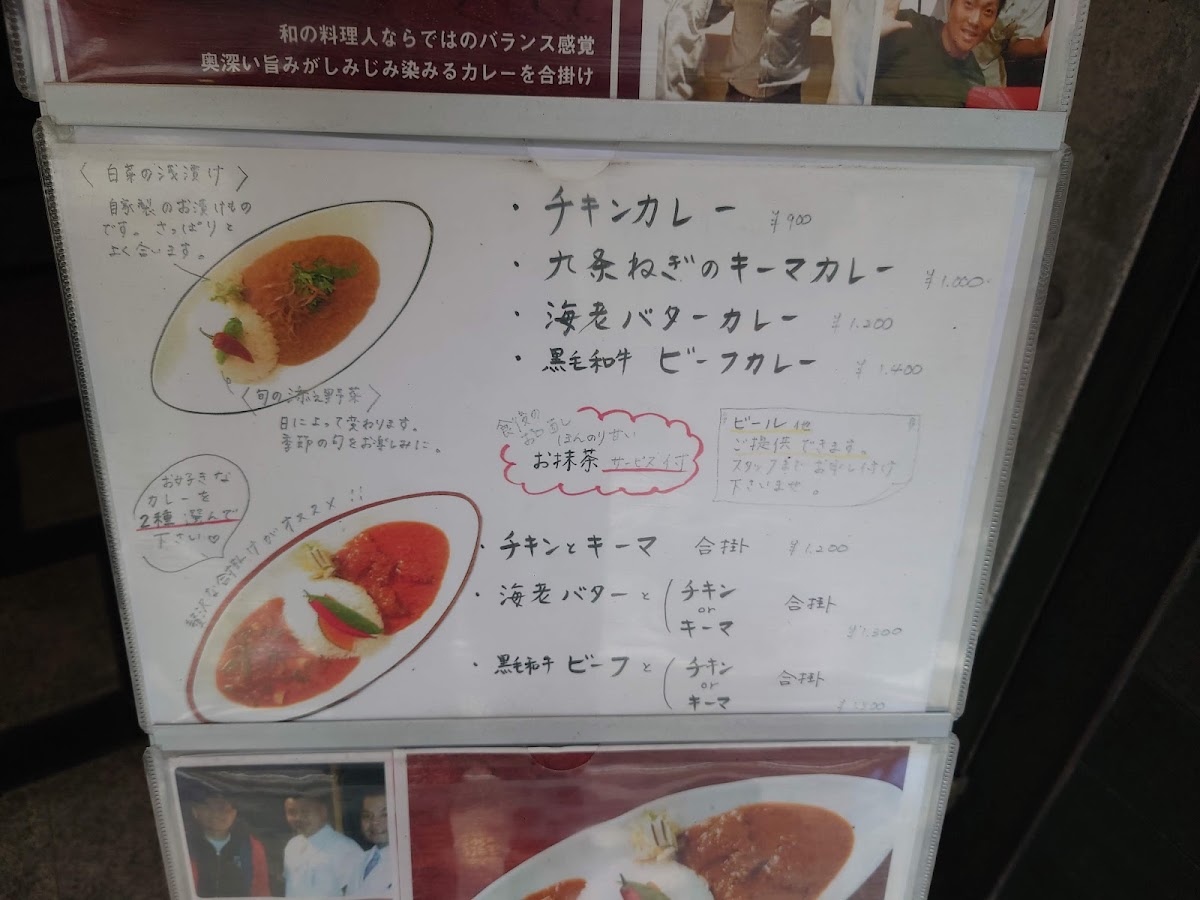 和の料理人ならではのバランス感覚
奥深い旨みがしみじみ染みるカレーを合掛け
〈白菜の浅漬け〉
自家製のお漬けもの
です。さっぱりと
よく合います。
・チキンカレー ¥900
・九条ねぎのキーマカレー ¥1.000-
・海老バターカレー ¥1.200
・黒毛和牛 ビーフカレー ¥1.400
〈旬の添え野菜〉
日によって変わります。
季節の旬をお楽しみに。
食後の
お口直し
ほんのり甘い
お抹茶 サービス付
ビール他
ご提供できます。
スタッフまでお申し付け
下さいませ。
お好きな
カレーを
2種選んで
下さい♡
贅沢な合掛けがオススメ!!
・チキンとキーマ 合掛 ¥1.200
・海老バターと(チキン
or
キーマ
合掛
¥1.300
・黒毛和牛 ビーフと(チキン
or
キーマ
合掛